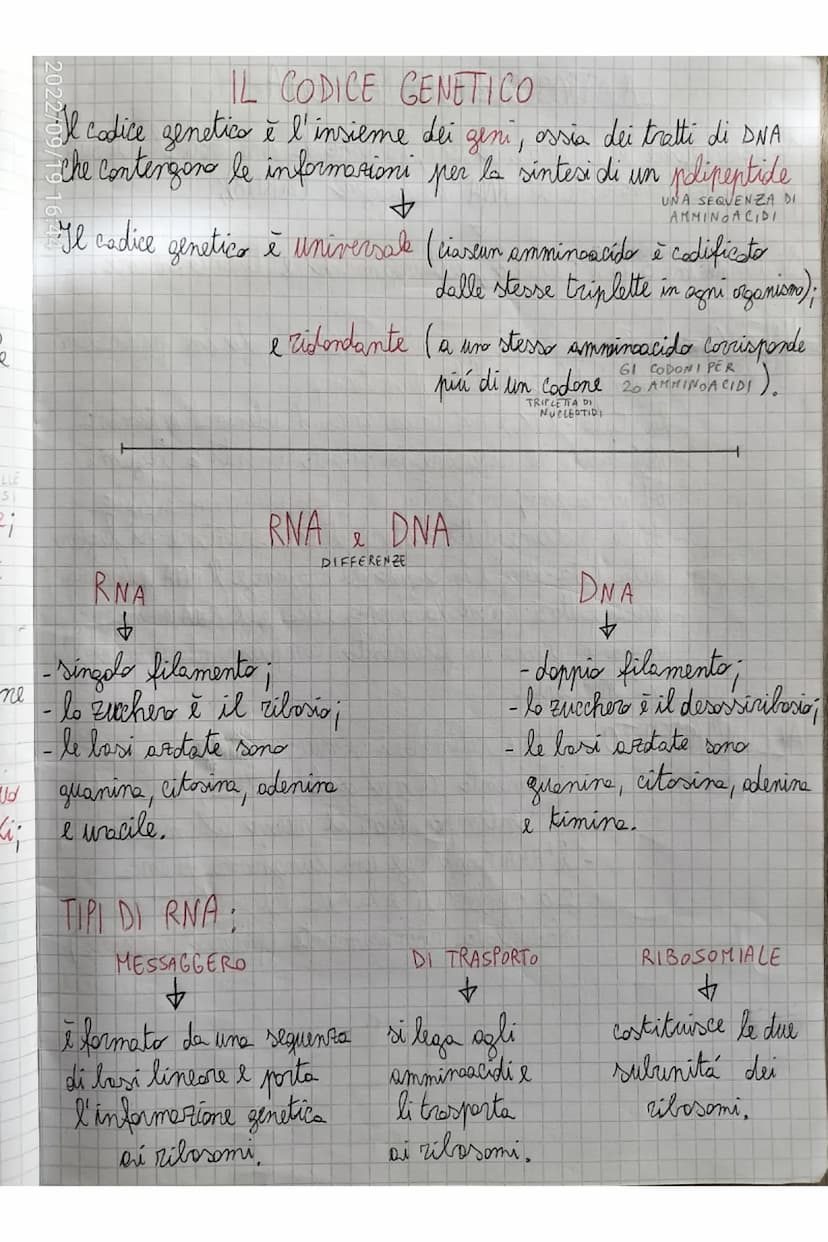 2022/09/19 16:44
IL CODICE GENETICO
Il codice genetico è l'insieme dei geni, ossia dei tratti di DNA
che contengono le informazioni per la sintesi di un polipeptide
UNA SEQUENZA DI
AMMINOACIDI
Il codice genetico è universale (ciascun amminoacido è codificato
dalle stesse triplette in ogni organismo);
e ridondante (a uno stesso amminoacido corrisponde
più di un codone 61 CODONI PER
20 AMMINOACIDI).
TRIPLETTA DI
NUCLEOTIDI
RNA e DNA
DIFFERENZE
RNA
- singolo filamento;
- lo zucchero è il ribosio;
- le basi azotate sono
guanina, citosina, adenina
e uracile.
DNA
- doppio filamento;
- lo zucchero è il desossiribosio;
- le basi azotate sono
guanina, citosina, adenina
e timina.
TIPI DI RNA:
MESSAGGERO
è formato da una sequenza
di basi lineare e porta
l'informazione genetica
ai ribosomi.
DI TRASPORTO
si lega agli
amminoacidi e
li trasporta
ai ribosomi.
RIBOSOMIALE
costituisce le due
subunitá dei
ribosomi.